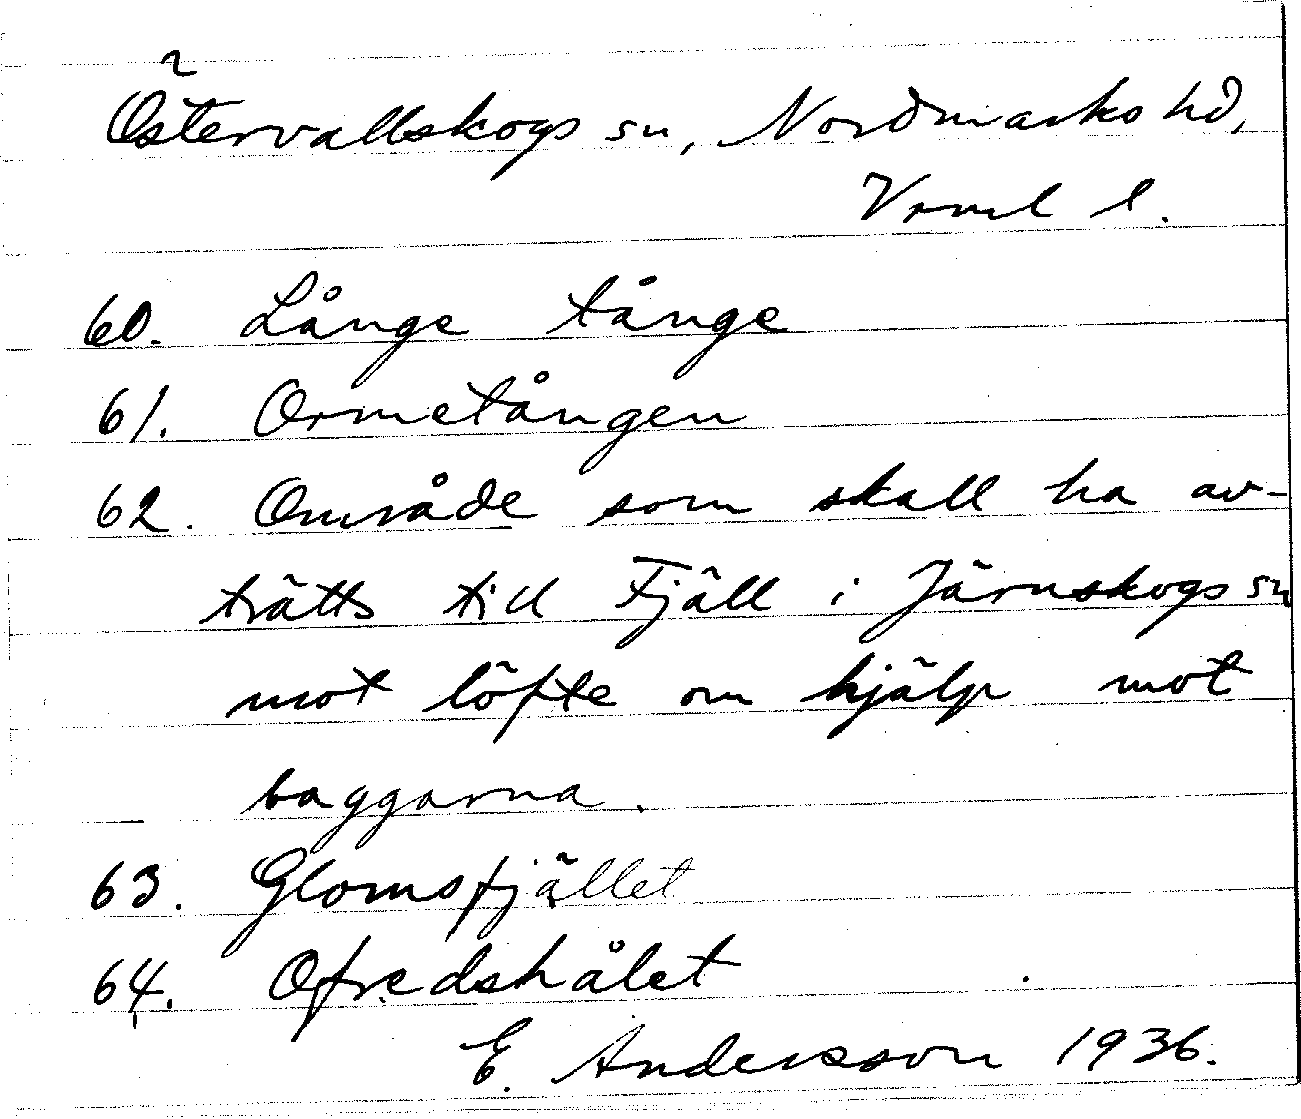 Östervallskogs sn, Nordmarks hd,
Vrml l.
60. Långe tånge
61. Ormetången
62. Område som skall ha av-
trätts till Fjäll i Järnskogs sn
mot löfte om hjälp mot
baggarna.
63. Glomsfjället
64. Ofredshålet
E. Andersson 1936.